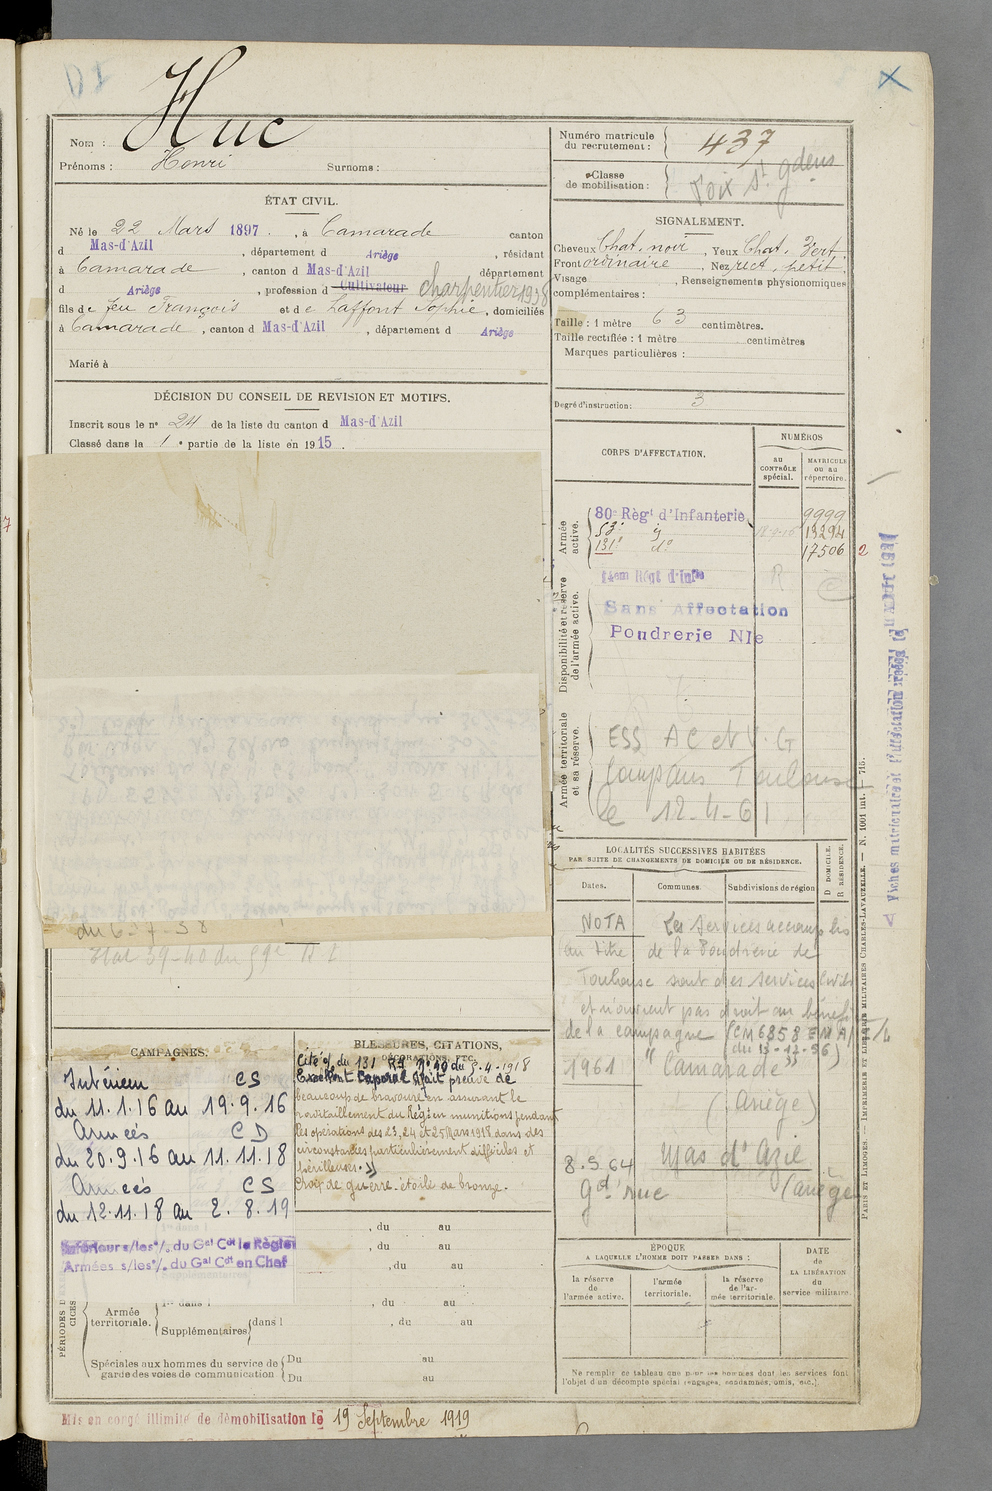 D1
Nom : Huc
Prénoms : Henri Surnoms :
ÉTAT CIVIL.
Né le 22 Mars 1897, à Camarade canton
d Mas-d'Azil, département d Ariège, résidant
à Camarade, canton d Mas-d'Azil département
d Ariège, profession d Cultivateur charpentier 1938
fils de feu François et de Laffont Sophie, domiciliés
à Camarade, canton d Mas-d'Azil, département d Ariège
Marié à
DÉCISION DU CONSEIL DE REVISION ET MOTIFS.
Inscrit sous le n° 24 de la liste du canton d Mas-d'Azil
Classé dans la 1e partie de la liste en 1915.
du 6-7-38
Etat 39-40 du
CAMPAGNES.
Intérieur CS
du 11.1.16 au 19.9.16
Armées CD
du 20.9.16 au 11.11.18
Armées CS
du 12.11.18 au 2.8.19
Intérieur s/les o/. du Gal Cdt la Région
Armées s/les o/. du Gal Cdt en Chef
BLESSURES, CITATIONS,
DÉCORATIONS, ETC.
Cité o/ du 131 RI n° 40 du 5-4-1918
Excellent Caporal a fait preuve de
beaucoup de bravoure en assurant le
ravitaillement du Rég en munitions pendant
les opérations des 23, 24 et 25 Mars 1918 dans des
circonstances particulièrement difficiles et
périlleuses. »
Croix de guerre. étoile de bronze.
, du au
, du au
, du au
PÉRIODES D
CICES
Armée
territoriale.
1re dans l , du au
Supplémentaires dans l , du au
Spéciales aux hommes du service de
garde des voies de communication
Du au
Du au
Mis en congé illimité de démobilisation le 19 Septembre 1919
Numéro matricule
du recrutement : 437
Classe
de mobilisation :
Foix St Gdens
SIGNALEMENT.
Cheveux Chat. noir, Yeux Chat. Vert
Front ordinaire, Nez rect. petit
Visage , Renseignements physionomiques
complémentaires :
Taille : 1 mètre 63 centimètres.
Taille rectifiée : 1 mètre centimètres
Marques particulières :
Degré d'instruction : 3
CORPS D'AFFECTATION.
NUMÉROS
au
CONTRÔLE
spécial.
MATRICULE
ou au
répertoire.
Armée
active.
80e Règt d'Infanterie 9999
53e d° 13294
131e d° 17506 2
Disponibilité et réserve
de l'armée active.
14em Régt d'Infie R
Sans Affectation
Poudrerie Nle
Armée territoriale
et sa réserve.
ESS AC et V.G
Compans Toulouse
le 12-4-61
LOCALITÉS SUCCESSIVES HABITÉES
PAR SUITE DE CHANGEMENTS DE DOMICILE OU DE RÉSIDENCE.
Dates. Communes. Subdivisions de région
D DOMICILE.
R RÉSIDENCE.
NOTA Les services accomplis
au titre de la Poudrerie de
Toulouse sont des services Civils
et n'ouvrent pas droit au bénéfi
de la campagne (CM 6858 EMA/
du 13-12-56)
1961 "Camarade"
(Ariège)
8.5.64 Mas d'Azil
Gd rue (Ariège
ÉPOQUE
A LAQUELLE L'HOMME DOIT PASSER DANS :
la réserve
de l'armée active.
l'armée
territoriale.
la réserve
de l'ar-
mée territoriale.
DATE
de
LA LIBÉRATION
du
service militaire.
Ne remplir ce tableau que pour les hommes dont les services font
l'objet d'un décompte spécial (engagés, condamnés, omis, etc.).
PARIS ET LIMOGES. — IMPRIMERIE ET LIBRAIRIE MILITAIRES CHARLES-LAVAUZELLE. — N. 1001 int. — 715.